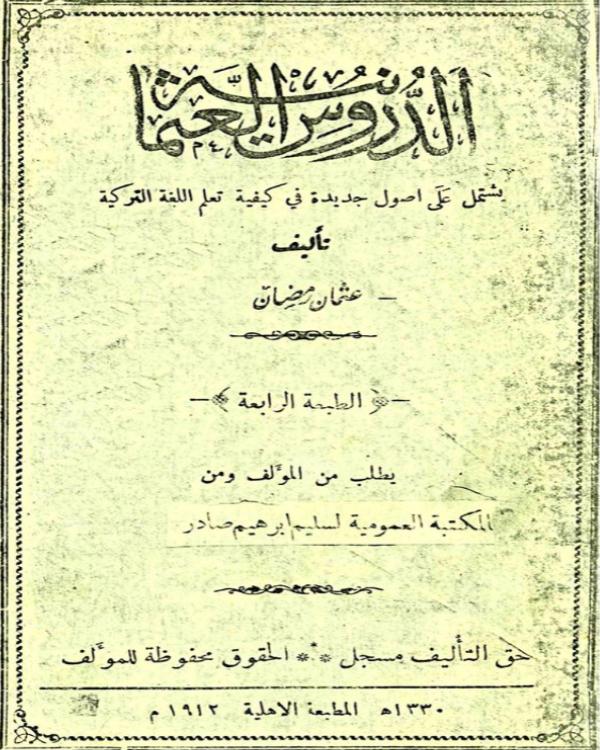 الدُّرُوسُ العُثمَانيَّة
يشتمل عَلَى اصول جديدة في كيفية تعلم اللغة التركية
تأليف
عثمان رمضان
الطبعة الرابعة
يطلب من المؤلف ومن
المكتبة العمومية لسليم ابرهيم صادر
حق التأليف مسجل ⁂ الحقوق محفوظة للمؤلف
١٣٣٠ھ المطبعة الاهلية ١٩١٢ م